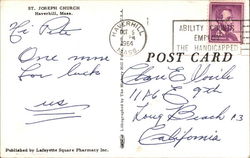 ST. JOSEPH CHURCH
Haverhill, Mass.
HAVERHILL
OCT 5
PM
1964
MASS.
ABILITY COUNTS
EMPLOY
THE HANDICAPPED
POST CARD
Hi Pete
One more
for luck
us
1126 E 9th
Long Beach 13
California
Published by Lafayette Square Pharmacy Inc.